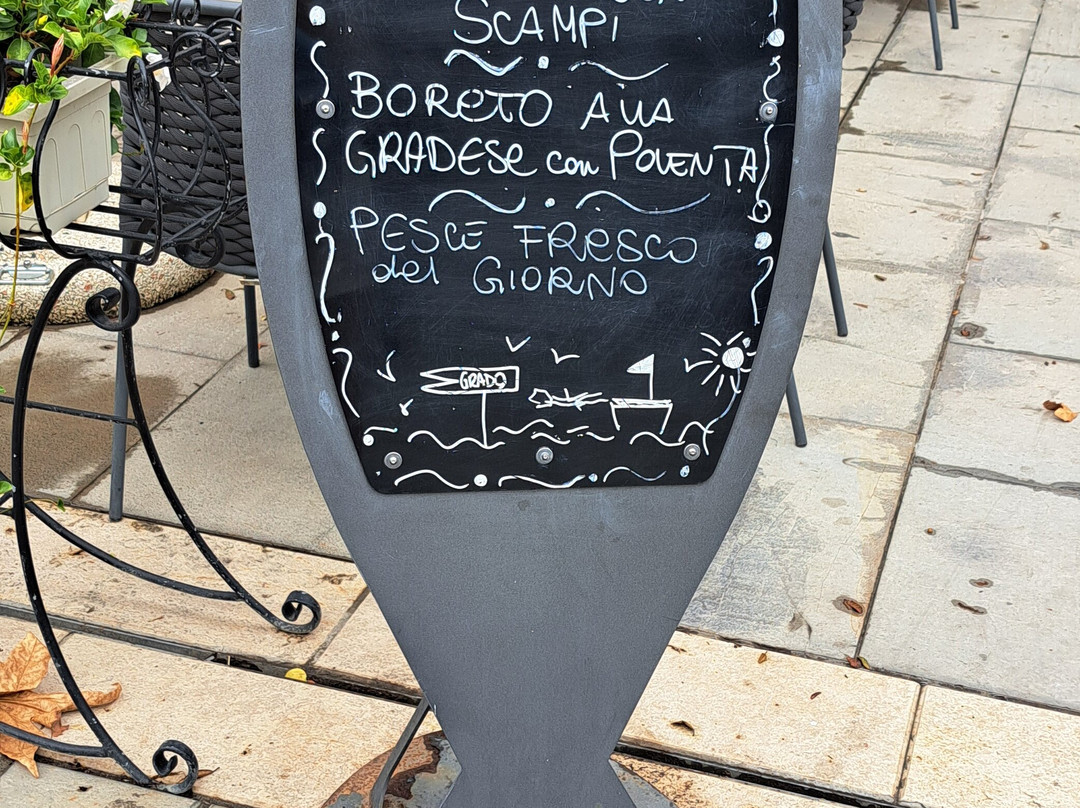 SCAMPI
BORETO ALLA
GRADESE con POLENTA
PESCE FRESCO
del GIORNO
GRADO